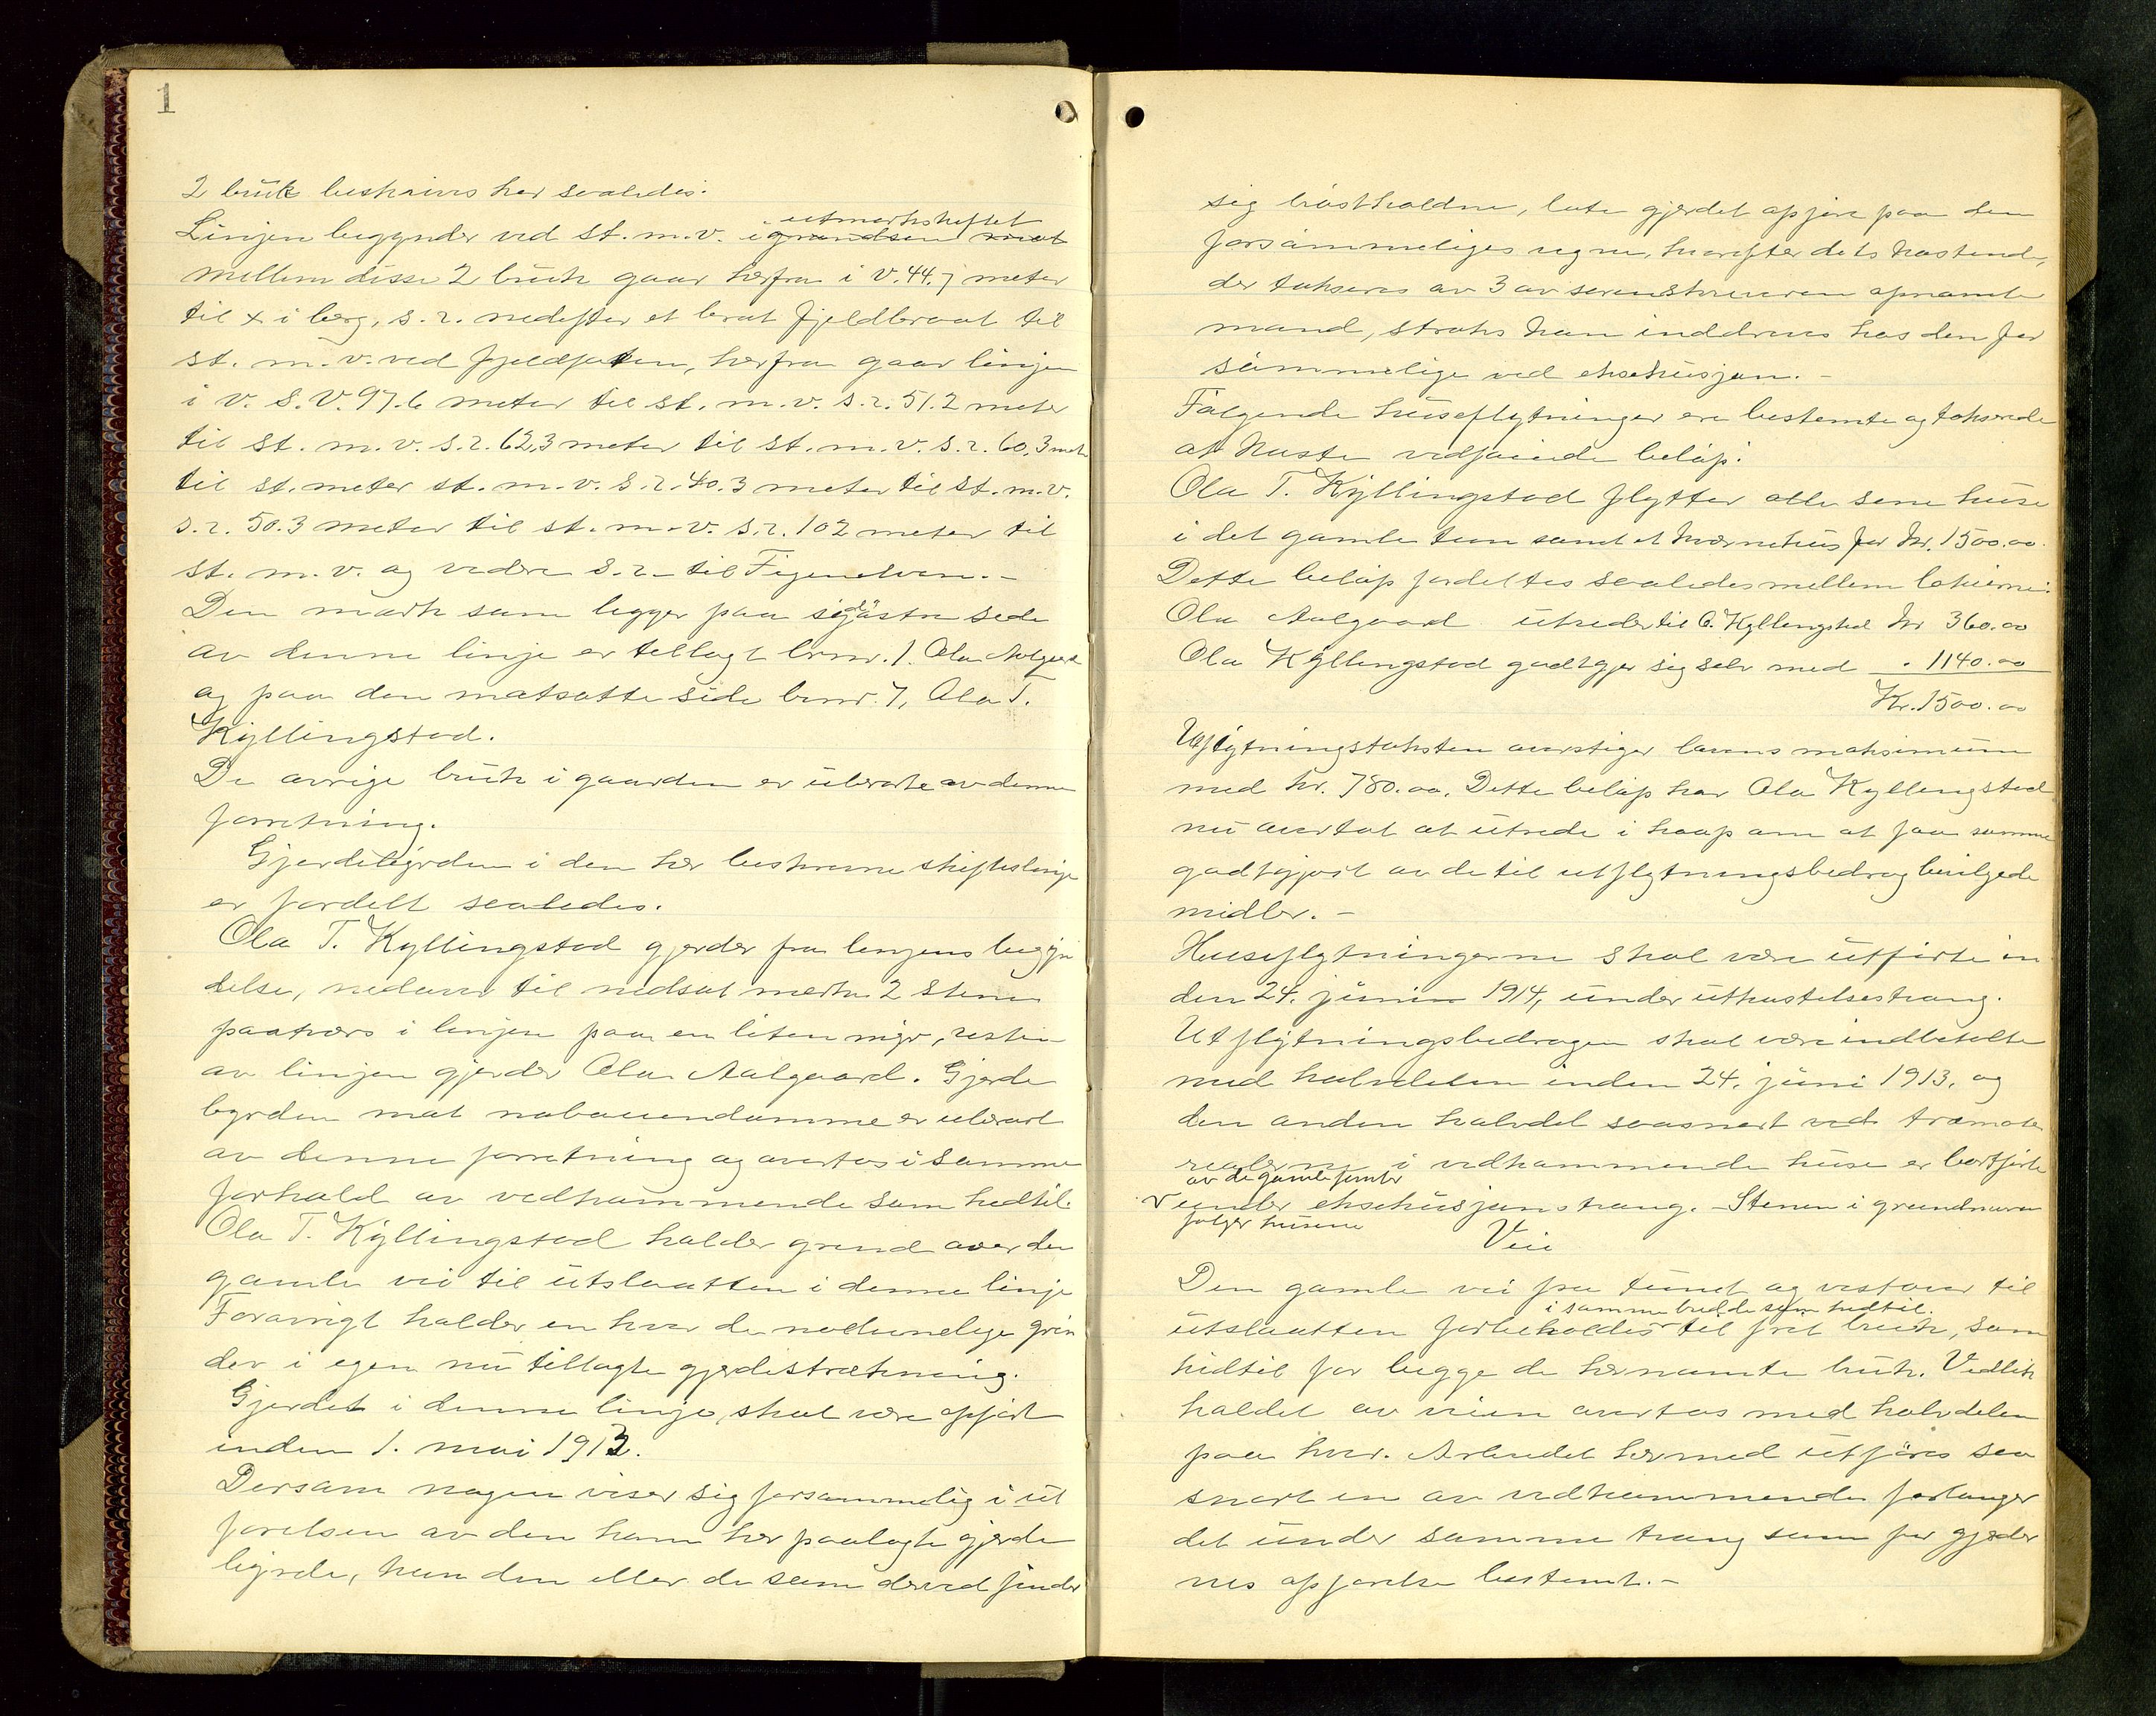 1
2 bruk beskrives her saaledes.
Linjen begynder ved st. m. v. i utmarksskiftet
mellem disse 2 bruk gaar herfra i V. 44.7 meter
til x i berg, s. r. nedefter et brat fjeldbraat til
st. m. v. ved fjeldfoten, herfra gaar linjen
i V. S. V. 97.6 meter til st. m. v. s. r. 51.2 meter
til st. m. v. s. r. 62,3 meter til st. m. v. s. r. 60,3 meter
til st. meter st. m. v. s. r. 40.3 meter til st. m. v.
s. r. 50.3 meter til st. m. v. s. r. 102 meter til
st. m. v. og videre s. r. til Figenelven. -
Den mark som ligger paa sydöstre side
av denne linje er tillagt brnr. 1. Ola Aalgaard
og paa den motsatte side brnr. 7, Ola T.
Kyllingstad.
De övrige bruk i gaarden er uberörte av denne
forretning.
Gjerdebyrden i den her beskrevne skifteslinje
er fordelt saaledes.
Ola T. Kyllingstad gjerder fra linjens begyn
delse, nedover til nedsat merke 2 stene
paatvers i linjen paa en liten , resten
av linjen gjerder Ola Aalgaard. Gjerde
byrden mot naboeiendomme er uberört
av denne forretning og overtas i samme
forhold av vedkommende som hidtil.
Ola T. Kyllingstad holder grind over den
gamle vei til utslaatten i denne linje
Forövrigt holder en hver de nödvendige grin
der i egen nu tillagte gjerdestrekning.
Gjerdet i denne linje skal være opfört
inden 1. mai 1913.
Dersom nogen viser sig forsömmelig i ut
förelsen av den ham her paalagte gjerde
byrde, kan den eller de som derved finder
sig bröstholdne, late gjerdet opföre paa den
forsömmeliges regne, hvorefter dets kostende,
der takseres av 3 av sorenskriveren opnævnte
mænd, straks kan inddrives hos den for
sömmelige ved eksekusjon. -
Fölgende huseflytninger ere bestemte og takserede
at koste vedföiede belöp:
Ola T. Kyllingstad flytter alle sine huse
i det gamle tun samt et kvernehus for kr. 1500.00.
Dette belöp fordeltes saaledes mellem lodeierne:
Ola Aalgaard utreder til O. Kyllingstad kr 360.00
Ola Kyllingstad godtgjör sig selv med " 1140.00
Kr. 1500.00
Utflytningstaksten overstiger lovens maksimum
med kr. 780.00. Dette belöp har Ola Kyllingstad
nu overtat at utrede i haap om at faa samme
godtgjort av de til utflytningsbedrag bevilgede
midler. -
Huseflytningerne skal være utförte in
den 24. junin 1914, under utkastelsestvang.
Utflytningsbedragen skal være indbetalte
med halvdelen inden 24. juni 1913, og
den anden halvdel saasnart ved
i vedkommende huse er bortförte
av de gamle tomter
v under eksekusjonstvang. - Stenen i grundmuren
fölger husene
Vei
Den gamle vei fra tunet og vestover til
i samme bredde som hidtil.
utslaatten forbeholdes til frit bruk, som
hidtil for begge de hernævnte bruk. Vedlike
holdet av veien overtas med halvdelen
paa hver. Arbeidet hermed utföres saa
snart en av vedkommende forlanger
det under samme tvang som for gjerder
nes opförelse bestemt. -